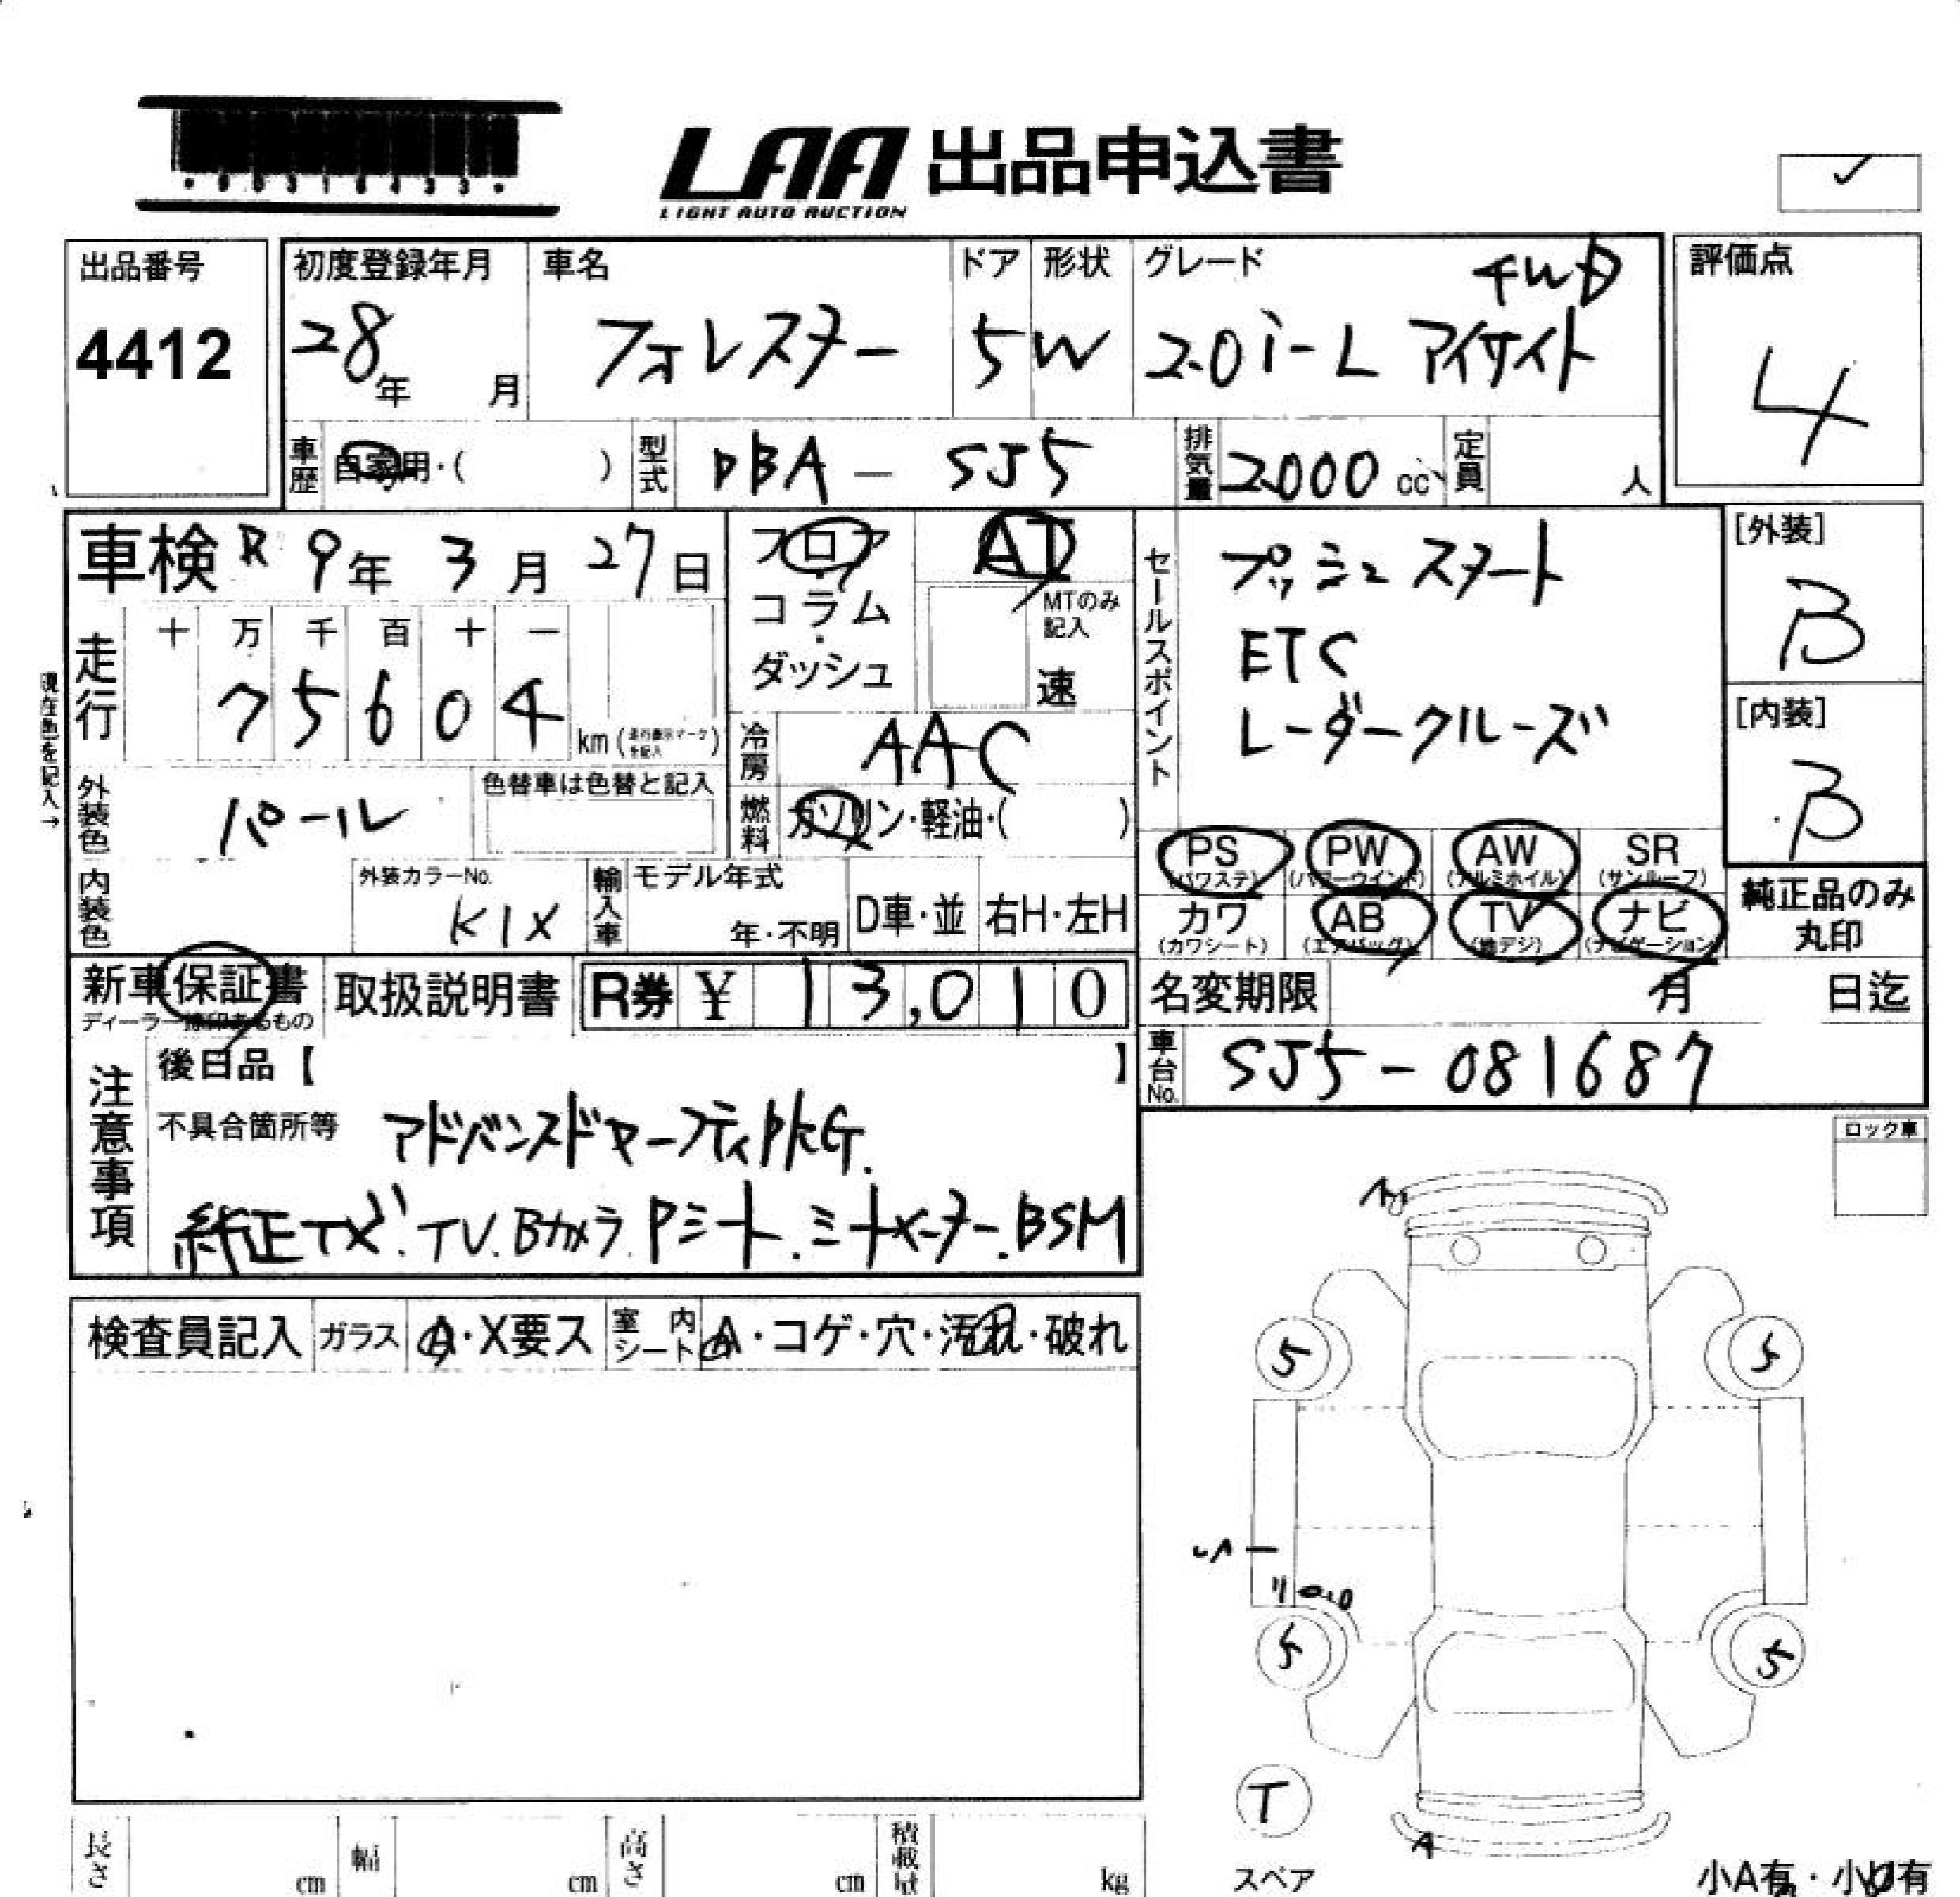 LAA 出品申込書
LIGHT AUTO AUCTION
✓
出品番号
4412
初度登録年月
28年 月
車名
フォレスター
ドア
5
形状
W
グレード
4WD
2.0i-L アイサイト
評価点
4
車歴 自家用・( )
型式 DBA - SJ5
排気量 2000 cc
定員 人
車検 R 9年 3月 27日
フロア
・
コラム
・
ダッシュ
AT
MTのみ
記入
速
セールスポイント
プッシュスタート
ETC
レーダークルーズ
[外装]
B
[内装]
B
現在色を記入→
走行
十 万 千 百 十 一
7 5 6 0 4 km
冷房 AAC
外装色 パール
色替車は色替と記入
燃料 ガソリン・軽油・( )
内装色
外装カラーNo.
K1X
輸入車
モデル年式
年・不明
D車・並
右H・左H
PS
(パワステ)
PW
(パワーウインド)
AW
(アルミホイル)
SR
(サンルーフ)
カワ
(カワシート)
AB
(エアバッグ)
TV
(地デジ)
ナビ
(ナビゲーション)
純正品のみ
丸印
新車保証書
取扱説明書
R券 ¥ 13,010
名変期限 月 日迄
車台No. SJ5-081687
注意事項
後日品【 】
不具合箇所等 アドバンスドセーフティPKG.
純正ナビ.TV.Bカメラ.Pシート.ミラー.BSM
ロック車
検査員記入
ガラス A・X要ス
室内シート A・コゲ・穴・汚れ・破れ
A
5
5
5
5
T
スペア
A
小A有・小U有
長さ cm
幅 cm
高さ cm
積載量 kg